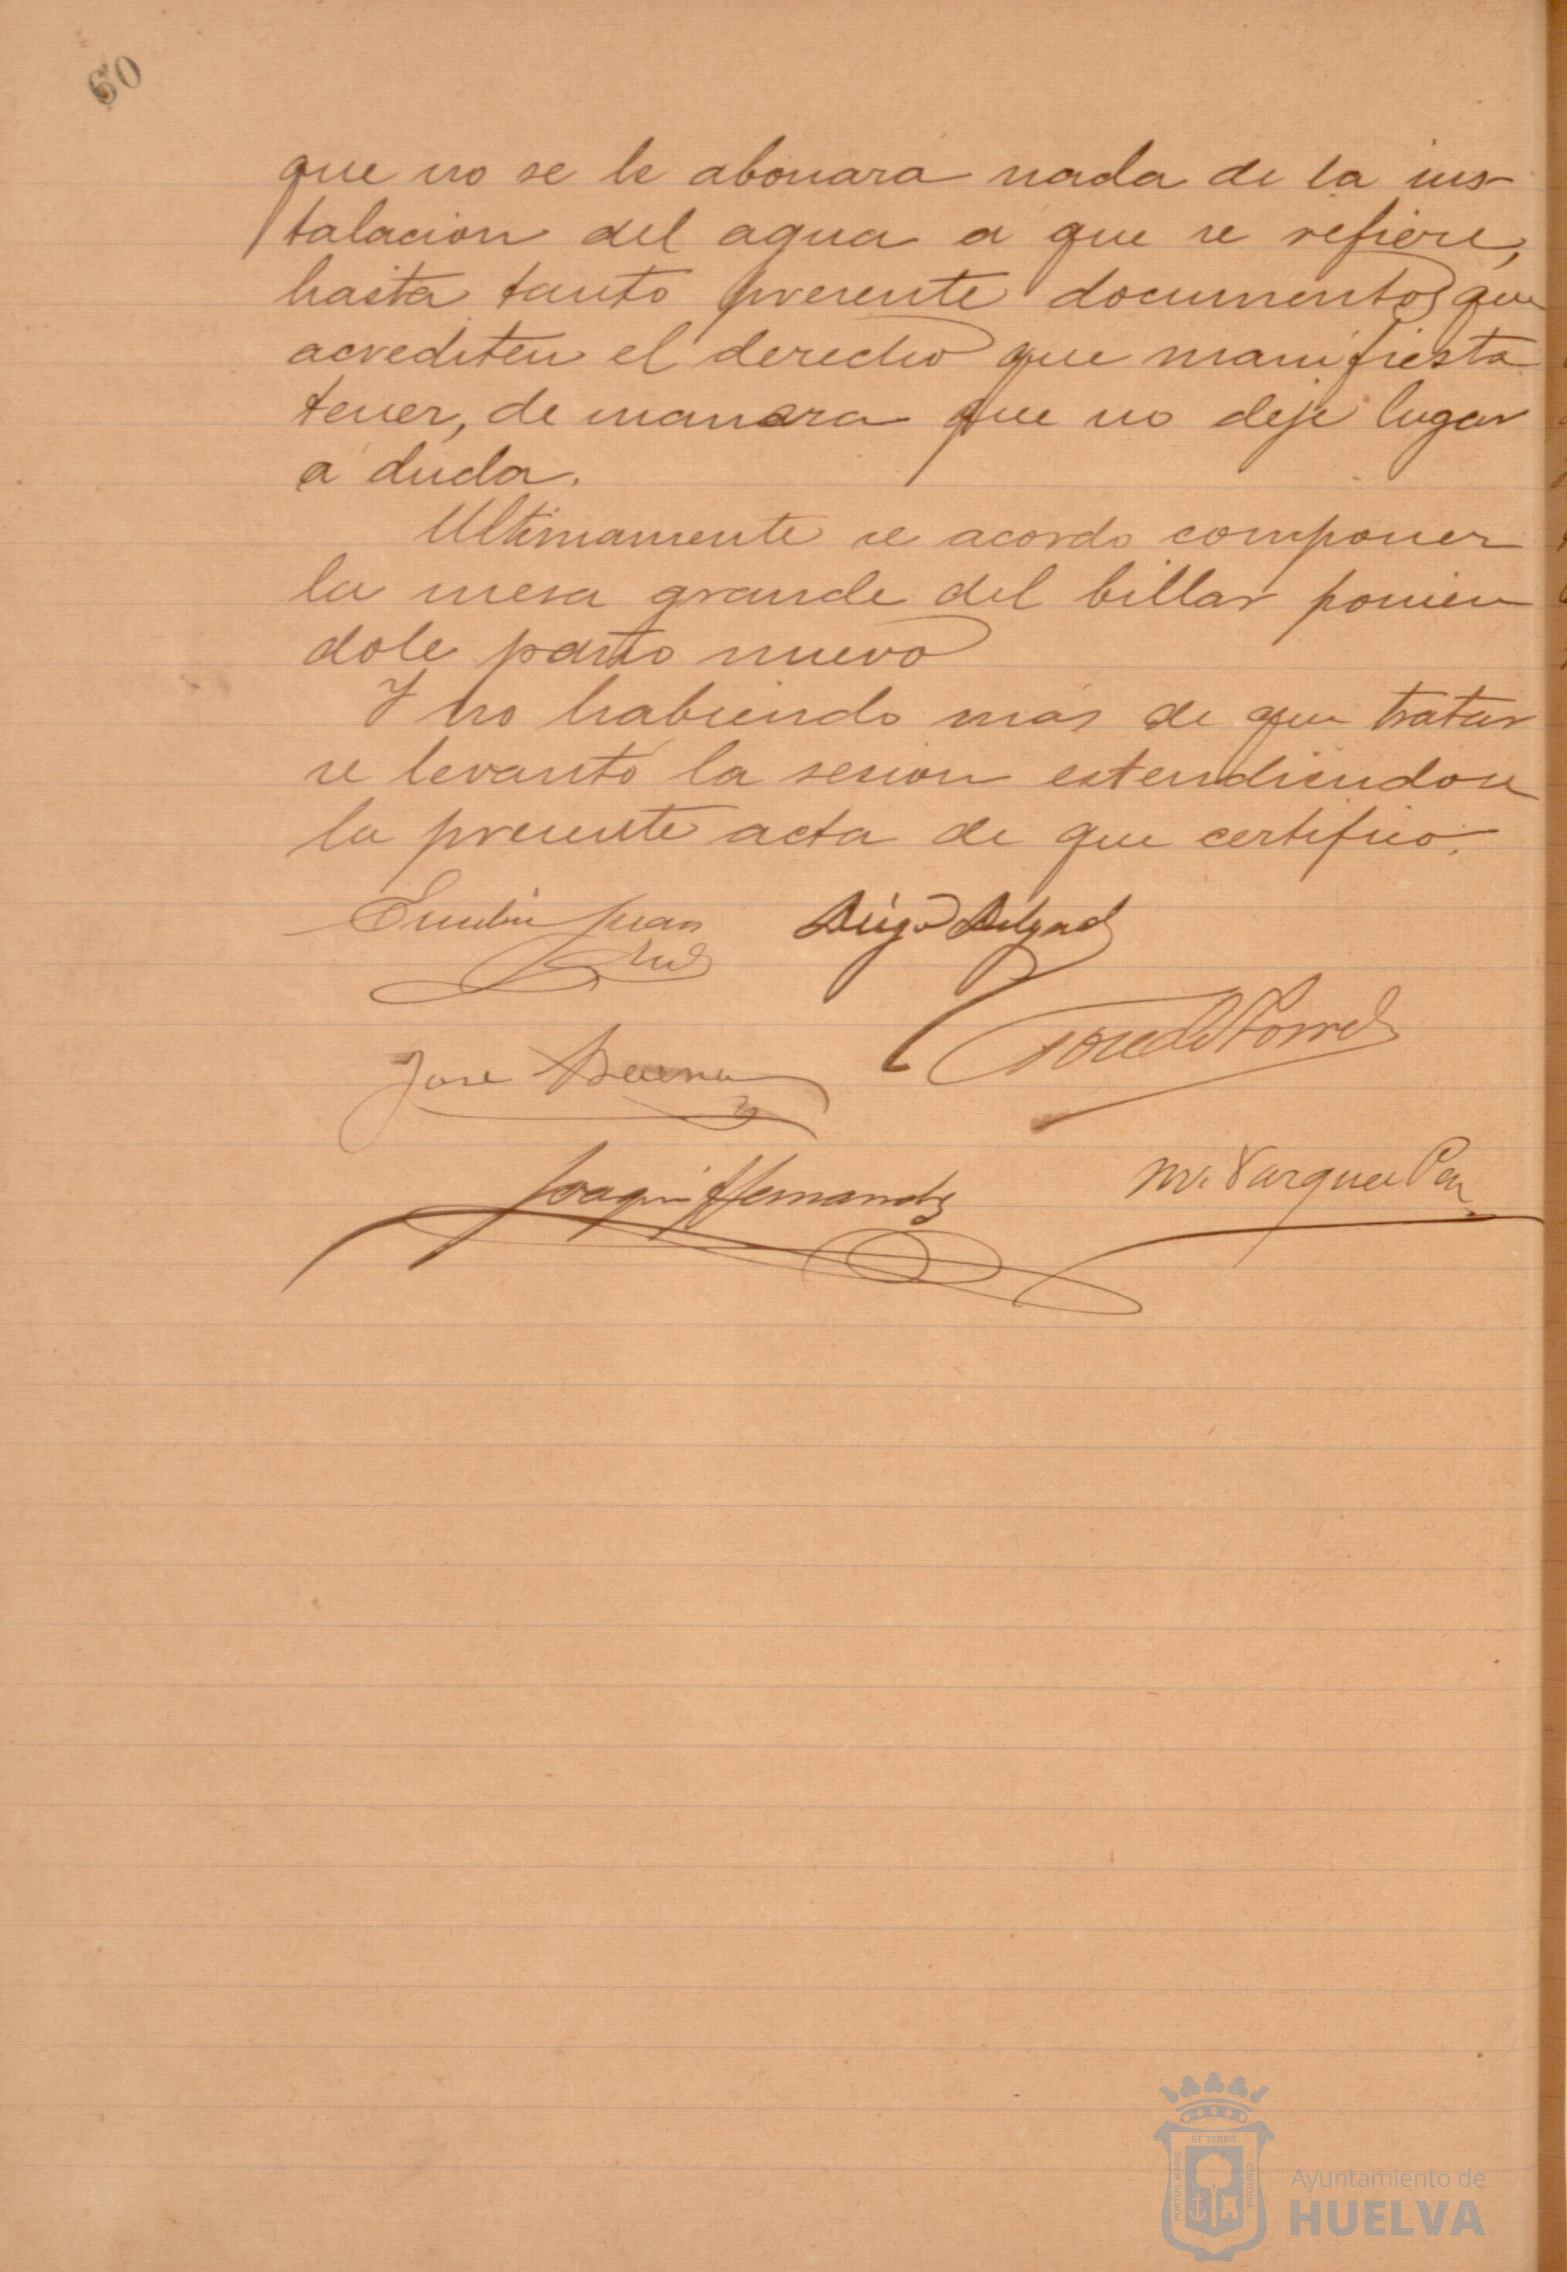 60
que no se le abonara nada de la ins-
talacion del agua a que se refiere,
hasta tanto presente documentos que
acrediten el derecho que manifiesta
tener, de manera que no deje lugar
a duda.
Ultimamente se acordo componer
la mesa grande del billar ponien
dole paño nuevo
Y no habiendo más de que tratar
se levantó la sesion estendiendose
la presente acta de que certifico.
Diego Delgado
José de Torres
Jose
Joaquin Hernandez
M. Vazquez
ET TERRÆ
PORTUS MARIS
CUSTODIA
Ayuntamiento de
HUELVA